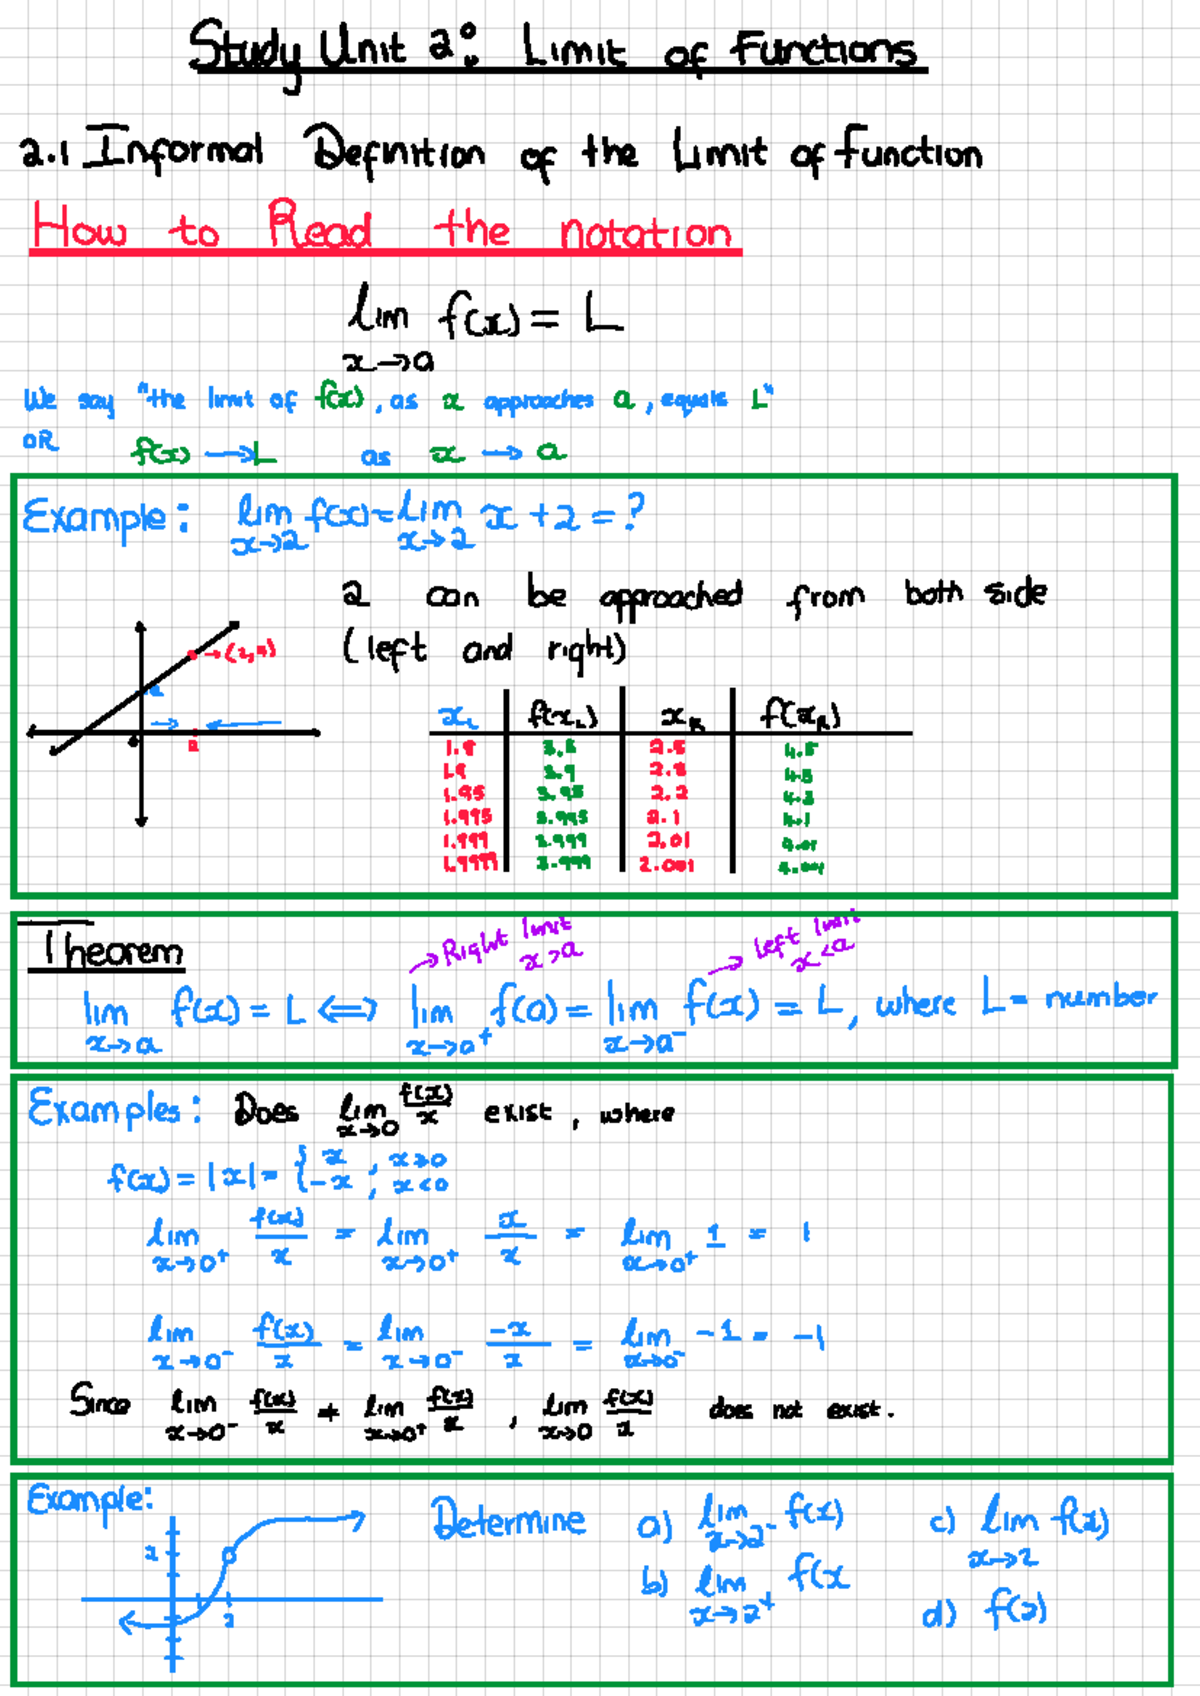 Study Unit 2: Limit of Functions
2.1 Informal Definition of the Limit of function
How to Read the notation
lim f(x) = L
x→a
We say "the limit of f(x), as x approaches a, equals L"
OR f(x) → L as x → a
Example: lim f(x) = lim x + 2 = ?
x→2 x→2
2 can be approached from both side
(left and right)
→(2,4)
2
x_L f(x_L) x_R f(x_R)
1.95 3.95 2.2
1.995 3.995 2.1 4.1
1.999 3.999 2.01 4.01
1.9999 3.999 2.001 4.001
Theorem
→ Right limit x>a
→ Left limit x<a
lim f(x) = L ⟺ lim f(a) = lim f(x) = L, where L = number
x→a x→a⁺ x→a⁻
Examples: Does lim f(x)/x exist, where
x→0
f(x) = |x| = { x ; x≥0
{ -x ; x<0
lim f(x)/x = lim x/x = lim 1 = 1
x→0⁺ x→0⁺ x→0⁺
lim f(x)/x = lim -x/x = lim -1 = -1
x→0⁻ x→0⁻ x→0⁻
Since lim f(x)/x ≠ lim f(x)/x , lim f(x)/x does not exist.
x→0⁻ x→0⁺ x→0
Example:
2
2
Determine a) lim f(x) c) lim f(x)
x→2⁻ x→2
b) lim f(x d) f(2)
x→2⁺